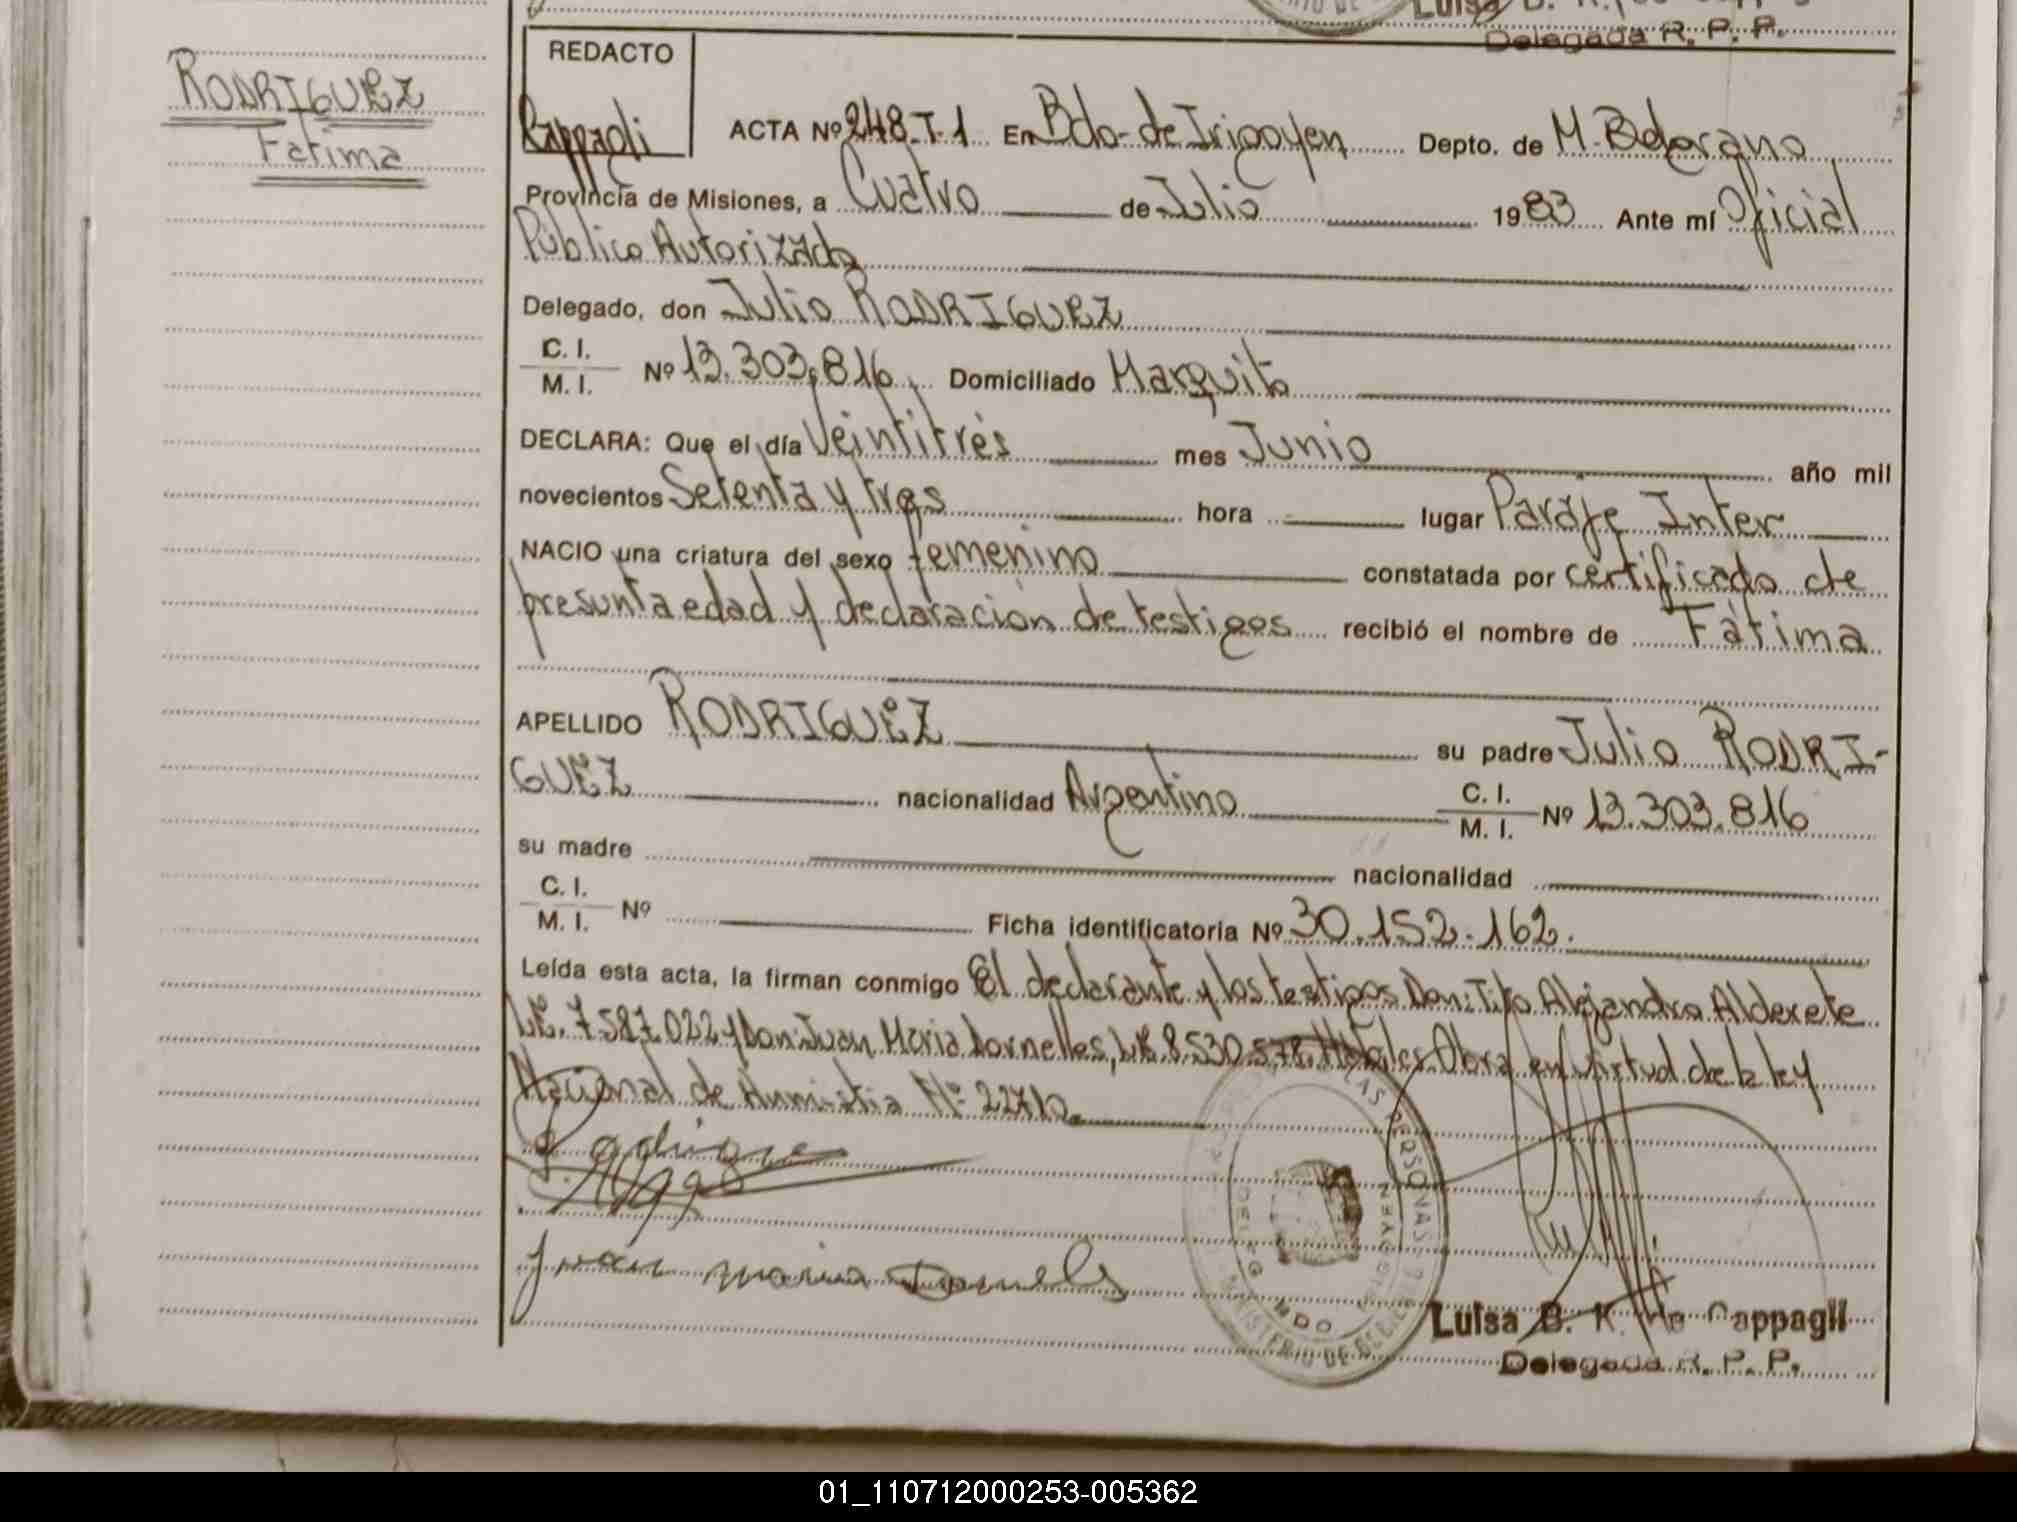 Delegada R. P. P.
RODRIGUEZ
Fátima
REDACTO
Rappagli
ACTA Nº 248-T-1 En Bdo-de Irigoyen Depto. de M. Belgrano
Provincia de Misiones, a Cuatro de Julio 1983 Ante mí Oficial
Público Autorizado
Delegado, don Julio RODRIGUEZ
C. I.
M. I. Nº 13.303.816, Domiciliado Marquito
DECLARA: Que el día Veintitrés mes Junio año mil
novecientos Setenta y tres hora lugar Paraje Inter
NACIO una criatura del sexo femenino constatada por certificado de
presunta edad y declaración de testigos recibió el nombre de Fátima
APELLIDO RODRIGUEZ su padre Julio RODRI-
GUEZ nacionalidad Argentino C. I. M. I. Nº 13.303.816
su madre nacionalidad
C. I.
M. I. Nº Ficha identificatoria Nº 30.152.162.
Leída esta acta, la firman conmigo El declarante y los testigos Don: Tito Alejandro Alderete
LE. 7587.022 y Don: Juan Maria Dornelles, LE. 8.530.578. Obra en virtud de la ley
Nacional de Amnistia Nº 22710.
Juan maria Dornels
Luisa B. K. de Cappagli
Delegada R. P. P.
01_110712000253-005362